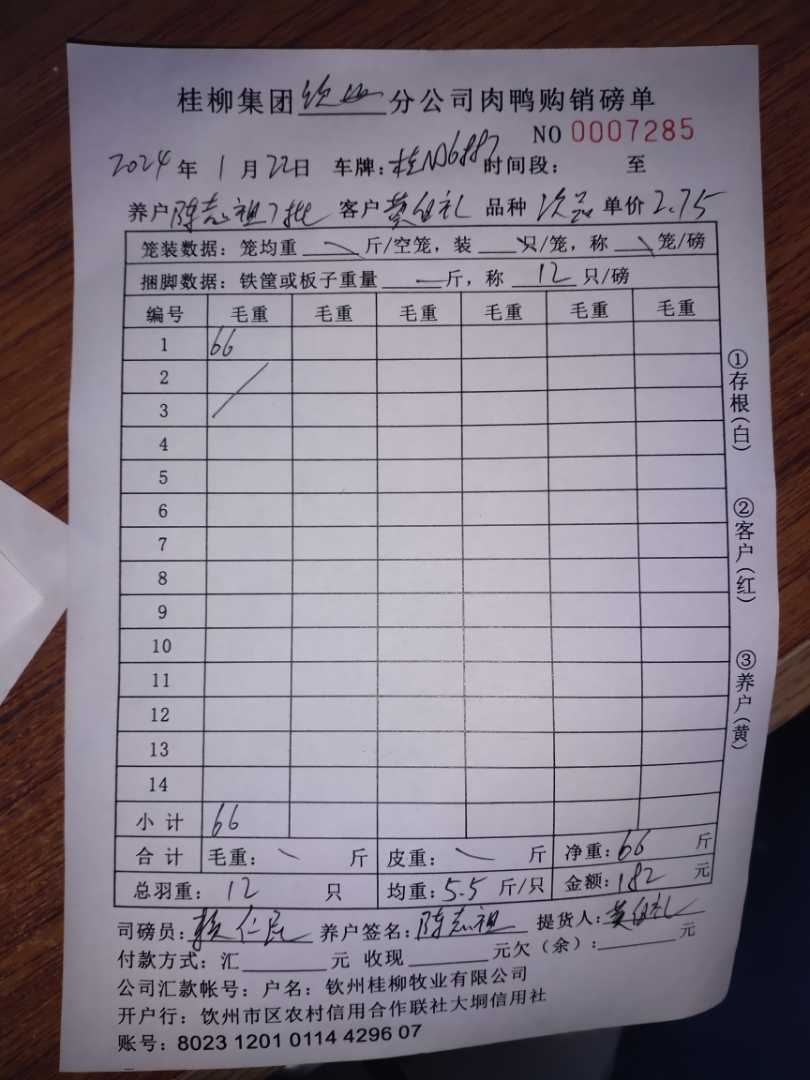 桂柳集团钦州分公司肉鸭购销磅单
NO 0007285
2024年1月22日 车牌:桂N06887 时间段: 至
养户陈志祖7批 客户黄伯礼 品种次品 单价2.75
笼装数据:笼均重\斤/空笼,装\只/笼,称\笼/磅
捆脚数据:铁筐或板子重量—斤,称12只/磅
编号 毛重 毛重 毛重 毛重 毛重 毛重
1 66
2
3
4
5
6
7
8
9
10
11
12
13
14
小计 66
合计 毛重:\斤 皮重:\斤 净重:66斤
总羽重:12只 均重:5.5斤/只 金额:182元
司磅员:赖仁民 养户签名:陈志祖 提货人:黄伯礼
付款方式:汇 元 收现 元欠(余): 元
公司汇款帐号:户名:钦州桂柳牧业有限公司
开户行:钦州市区农村信用合作联社大垌信用社
账号:8023 1201 0114 4296 07
①存根(白)
②客户(红)
③养户(黄)